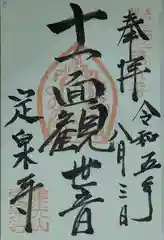 奉拝
令和五年
八月三日
十一面観世音
定泉寺